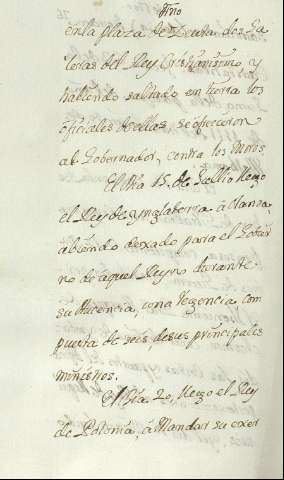 tino
en la plaza de Zeuta dos Ga
leras del Rey Cristianisimo y
habiendo saltado en tierra los
oficiales de ellas se ofrecieron
al Gobernador, contra los Moros
El Dia 15. de Jullio llego
el Rey de Ynglaterra á Olanda
abiendo dexado para el Gobier
no de aquel Reyno durante
su Aucencia, una Regencia com
puesta de seis, de sus principales
ministros.
El Dia 20, llego el Rey
de Polonia, á Mandar su exer